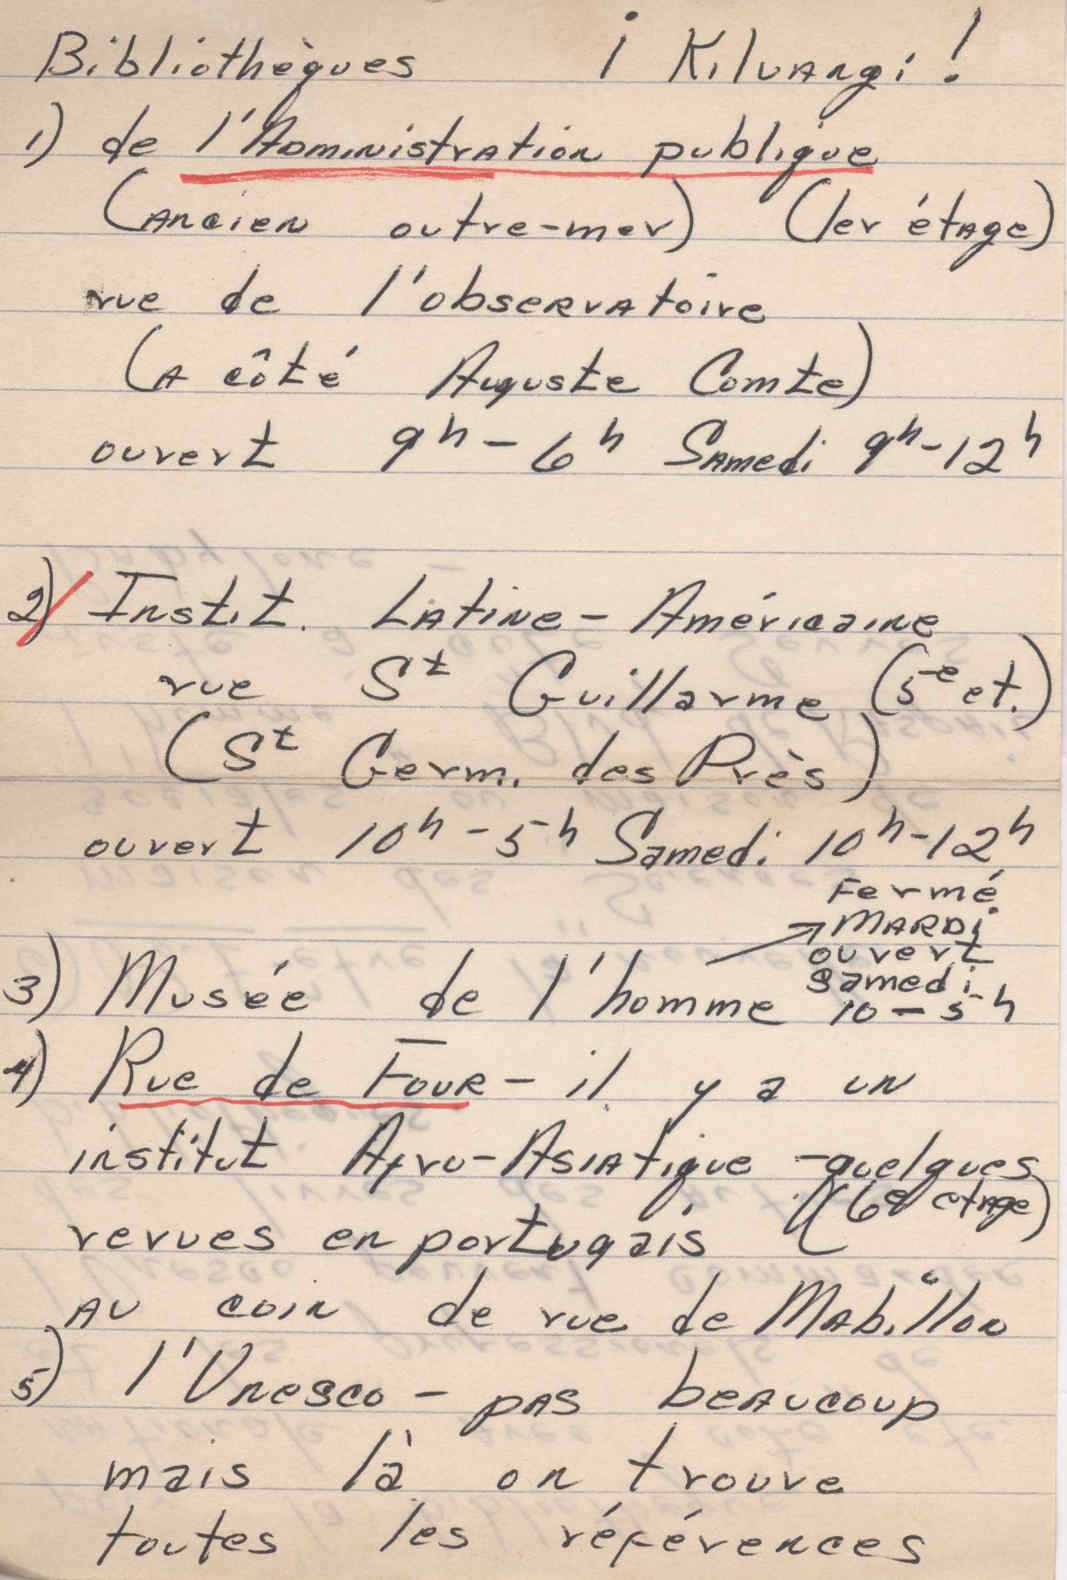 Bibliothèques ¡ Kiluangi!
1) de l'Administration publique
(ancien outre-mer) (1er étage)
rue de l'observatoire
(a côté Auguste Comte)
ouvert 9h-6h Samedi 9h-12h
2) Instit. Latine-Américaine
rue St Guillarme (5e et.)
(St Germ. des Près)
ouvert 10h-5h Samedi 10h-12h
Fermé
→ MARDi
ouvert
samedi
3) Musée de l'homme 10-5h
4) Rue de Four - il y a un
institut Afro-Asiatique - quelques
revues en portugais (6e etage)
au coin de rue de Mabillon
5) l'Unesco - pas beaucoup
mais là on trouve
toutes les références